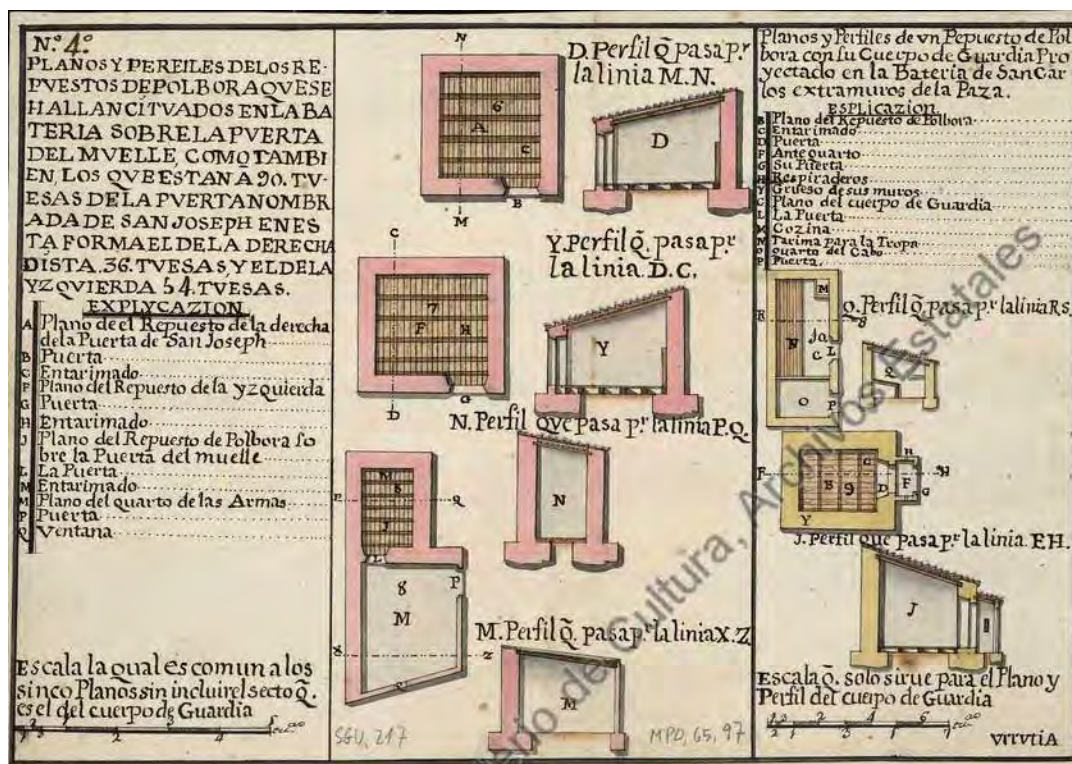 N.º 4º
PLANOS Y PERFILES DE LOS RE-
PVESTOS DE POLBORA QVE SE
HALLAN CITVADOS EN LA BA
TERIA SOBRE LA PVERTA
DEL MVELLE, COMO TAMBI
EN, LOS QVE ESTAN A 90. TV-
ESAS DE LA PVERTA NOMBR
ADA DE SAN JOSEPH EN ES
TA FORMA EL DE LA DERECHA
DISTA. 36. TVESAS, Y EL DE LA
YZQVIERDA 54. TVESAS.
EXPLYCAZION
A Plano de el Repuesto de la derecha
de la Puerta de San Joseph
B Puerta
C Entarimado
F Plano del Repuesto de la yzquierda
G Puerta
H Entarimado
J Plano del Repuesto de Polbora so
bre la Puerta del muelle
L La Puerta
M Entarimado
M Plano del quarto de las Armas
P Puerta
Q Ventana
Escala la qual es comun a los
sinco Planos sin incluir el secto q̃.
es el del cuerpo de Guardia
1 2 3 2 4
D. Perfil q̃ pasa p.r
la linia M.N.
N
6
A
C
B
M
D
Y. Perfil q̃. pasa p.r
la linia. D.C.
C
7
F H
G
D
Y
N. Perfil que pasa p.r la linia P.Q.
8
J
L
Q
N
8
M
P
Z
M. Perfil q̃. pasa p.r la linia X.Z
M
SGU, 217
MPD, 65, 97
Planos y Perfiles de vn Repuesto de Pol
bora con su Cuerpo de Guardia Pro
yectado en la Bateria de San Car
los extramuros de la Paza.
ESPLICAZION
B Plano del Repuesto de Polbora
C Entarimado
D Puerta
F Ante quarto
G Su Puerta
H Respiraderos
Y Grueso de sus muros
C Plano del cuerpo de Guardia
L La Puerta
M Cozina
N Tarima para la Tropa
O quarto del Cabo
P Puerta.
Q. Perfil q̃ pasa p.r la linia R S
R
M
L
C
N
O
P
8
Q
F
B 9
G
D
H
F
G
Y
J. Perfil que pasa p.r la linia E H.
J
Escala q̃. solo sirue para el Plano y
Perfil del cuerpo de Guardia
1 2 3 2 4 6
VRRVTIA
Ministerio de Cultura, Archivos Estatales